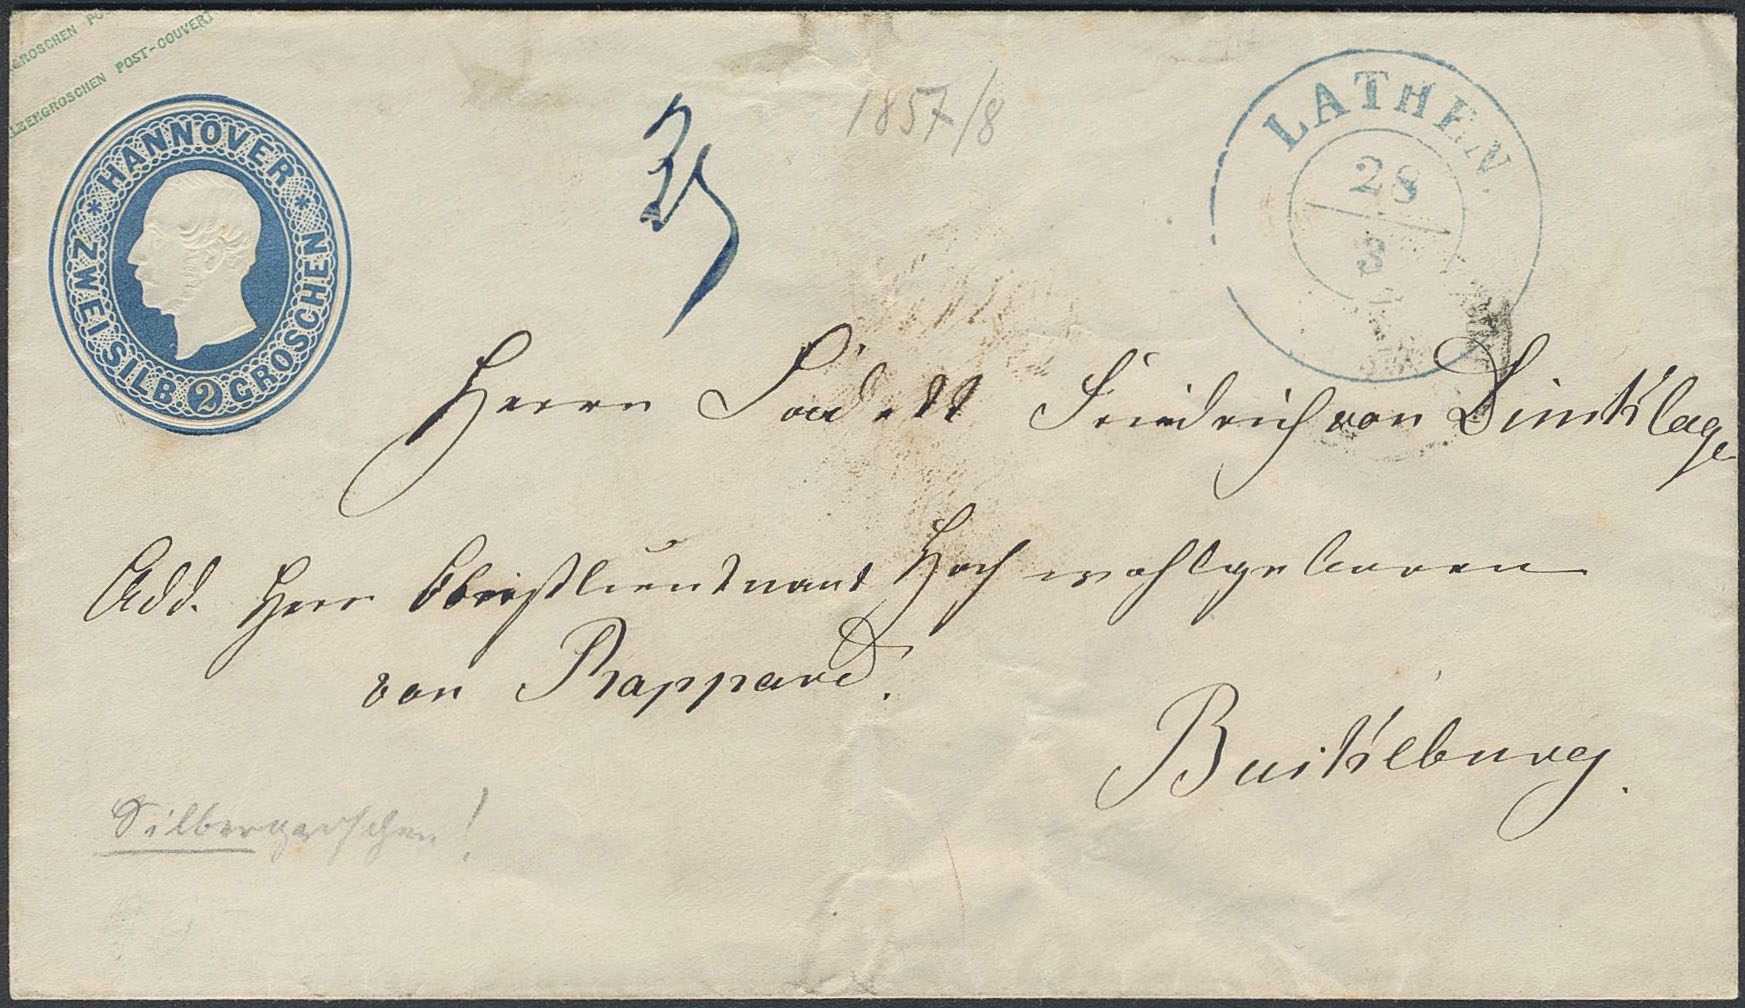 ROSCHEN PO
LBERGROSCHEN POST-COUVERT
HANNOVER
ZWEI SILB. 2 GROSCHEN
1857/8
LATHEN.
28
3
Herrn Cadett Friedrich von Dincklage
Add. Herr Obristlieutnant Hochwohlgeboren
von Rappard.
Bückeburg.
Silbergroschen!